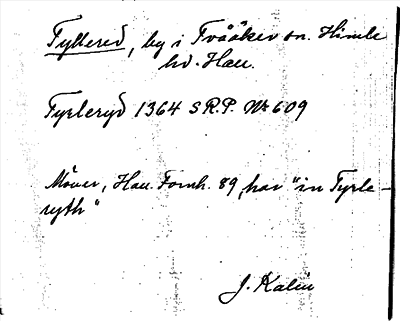 Tyllered, by i Tvååker sn. Himle
hd. Hall.
Tyrleryd 1364 SRP. Nr 609
Möller, Hall. Fornh. 89, har "in Tyrle-
ryth"
J. Kalin